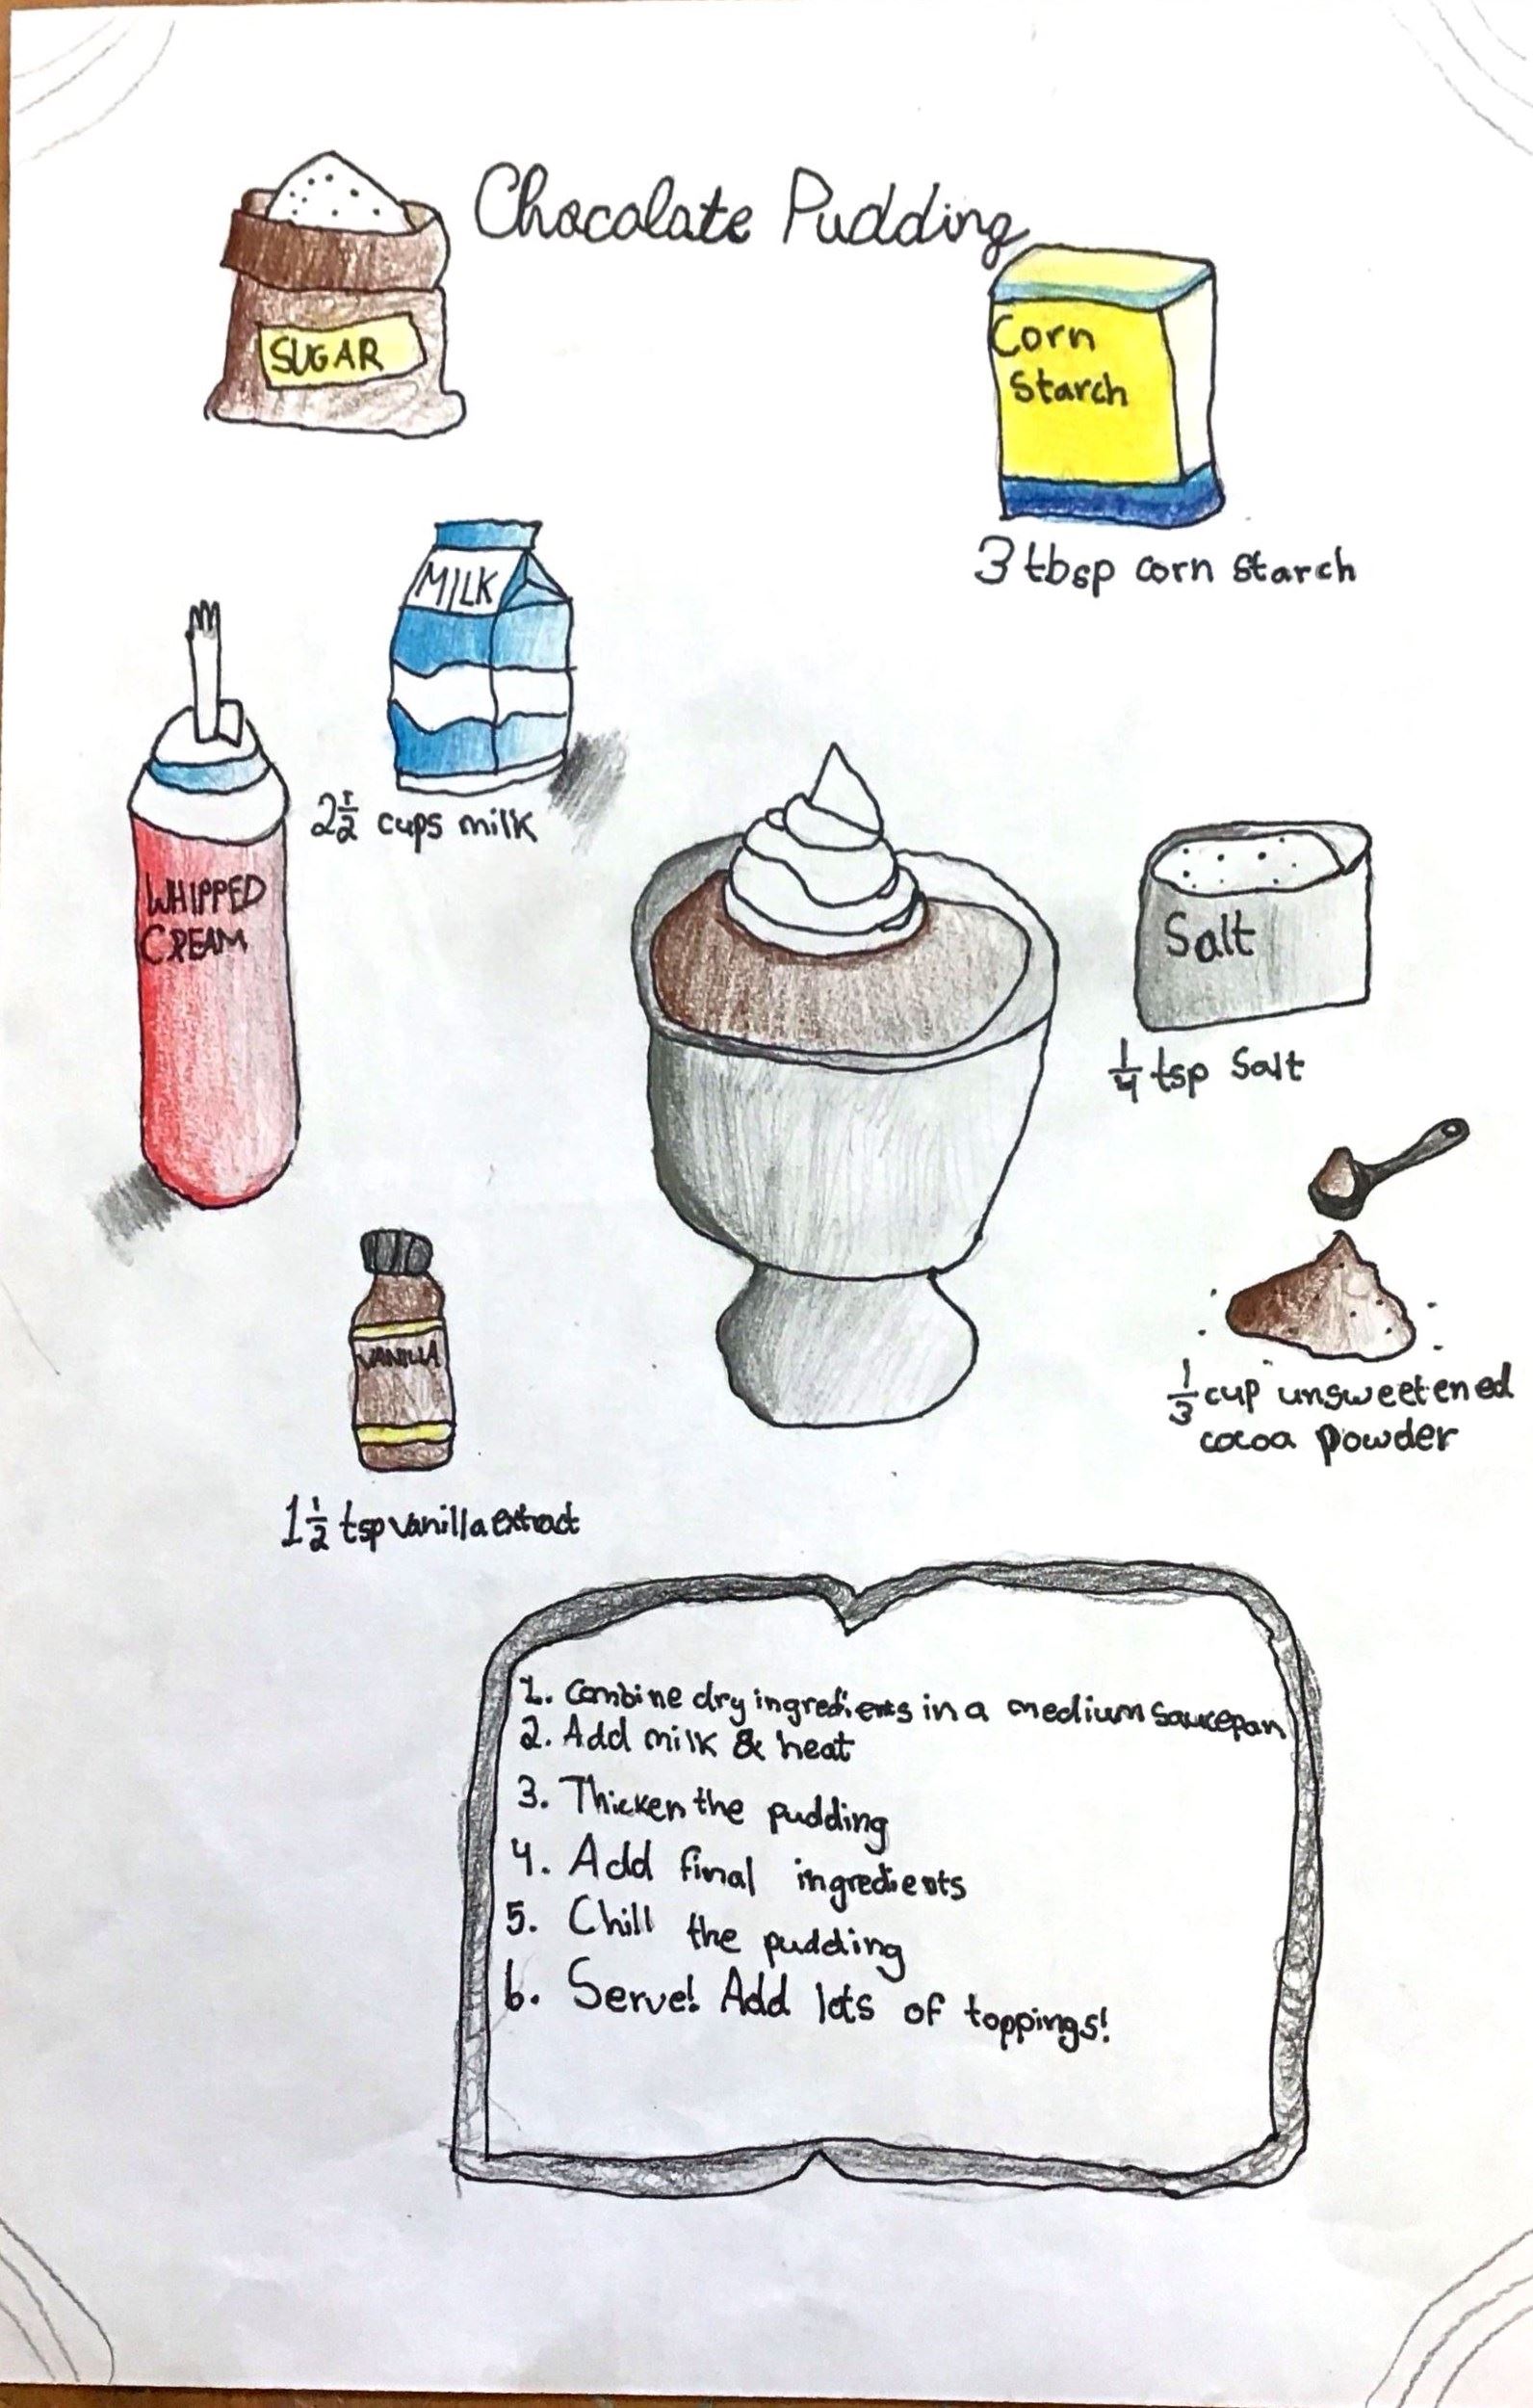 Chocolate Pudding
SUGAR
Corn
Starch
3 tbsp corn starch
MILK
2 1/2 cups milk
WHIPPED
CREAM
Salt
1/4 tsp Salt
1/3 cup unsweetened
cocoa powder
VANILLA
1 1/2 tsp vanilla extract
1. Combine dry ingredients in a medium saucepan
2. Add milk & heat
3. Thicken the pudding
4. Add final ingredients
5. Chill the pudding
6. Serve! Add lots of toppings!